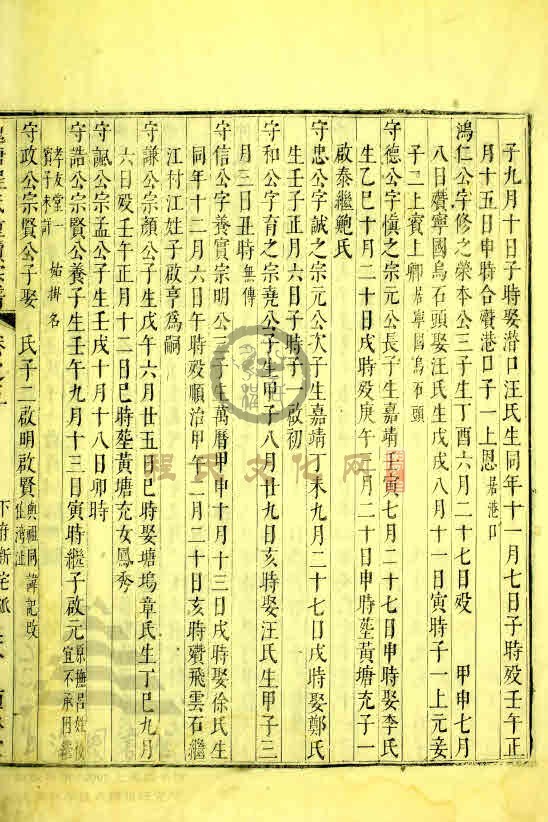 子九月十日子時娶潛口汪氏生同年十一月七日子時歿壬午正
月十五日申時合殯港口子一上恩居港口
鴻仁公字修之榮本公三子生丁酉六月二十七日歿 甲申七月
八日殯寧國烏石頭娶汪氏生戊戌八月十一日寅時子一上元妾
子二上賓上卿居寧國烏石頭
守德公字慎之宗元公長子生嘉靖壬寅七月二十七日申時娶李氏
生乙巳十月二十日戌時歿庚午二月二十日申時塟黃塘充子一
啟泰繼鮑氏
守忠公字誠之宗元公次子生嘉靖丁未九月二十七日戌時娶鄭氏
生壬子正月六日子時子一啟初
守和公字育之宗堯公子生甲子八月廿九日亥時娶汪氏生甲子三
月三日丑時無傳
守信公字養實宗明公三子生萬曆甲申十月十三日戌時娶徐氏生
同年十二月六日午時歿順治甲午二月二十日亥時殯飛雲石繼
江村江姓子啟亨為嗣
守謙公宗顏公子生戊午六月廿五日巳時娶塘塢章氏生丁巳九月
六日歿壬午正月十二日巳時塟黃塘充女鳳秀
守諷公宗孟公子生壬戌十月十八日卯時
守誥公宗賢公養子生壬午九月十三日寅時繼子啟元原撫呂姓
宜不承
孝友堂一 始掛名
守政公宗賢公子娶 氏子二啟明啟賢
程氏文化网